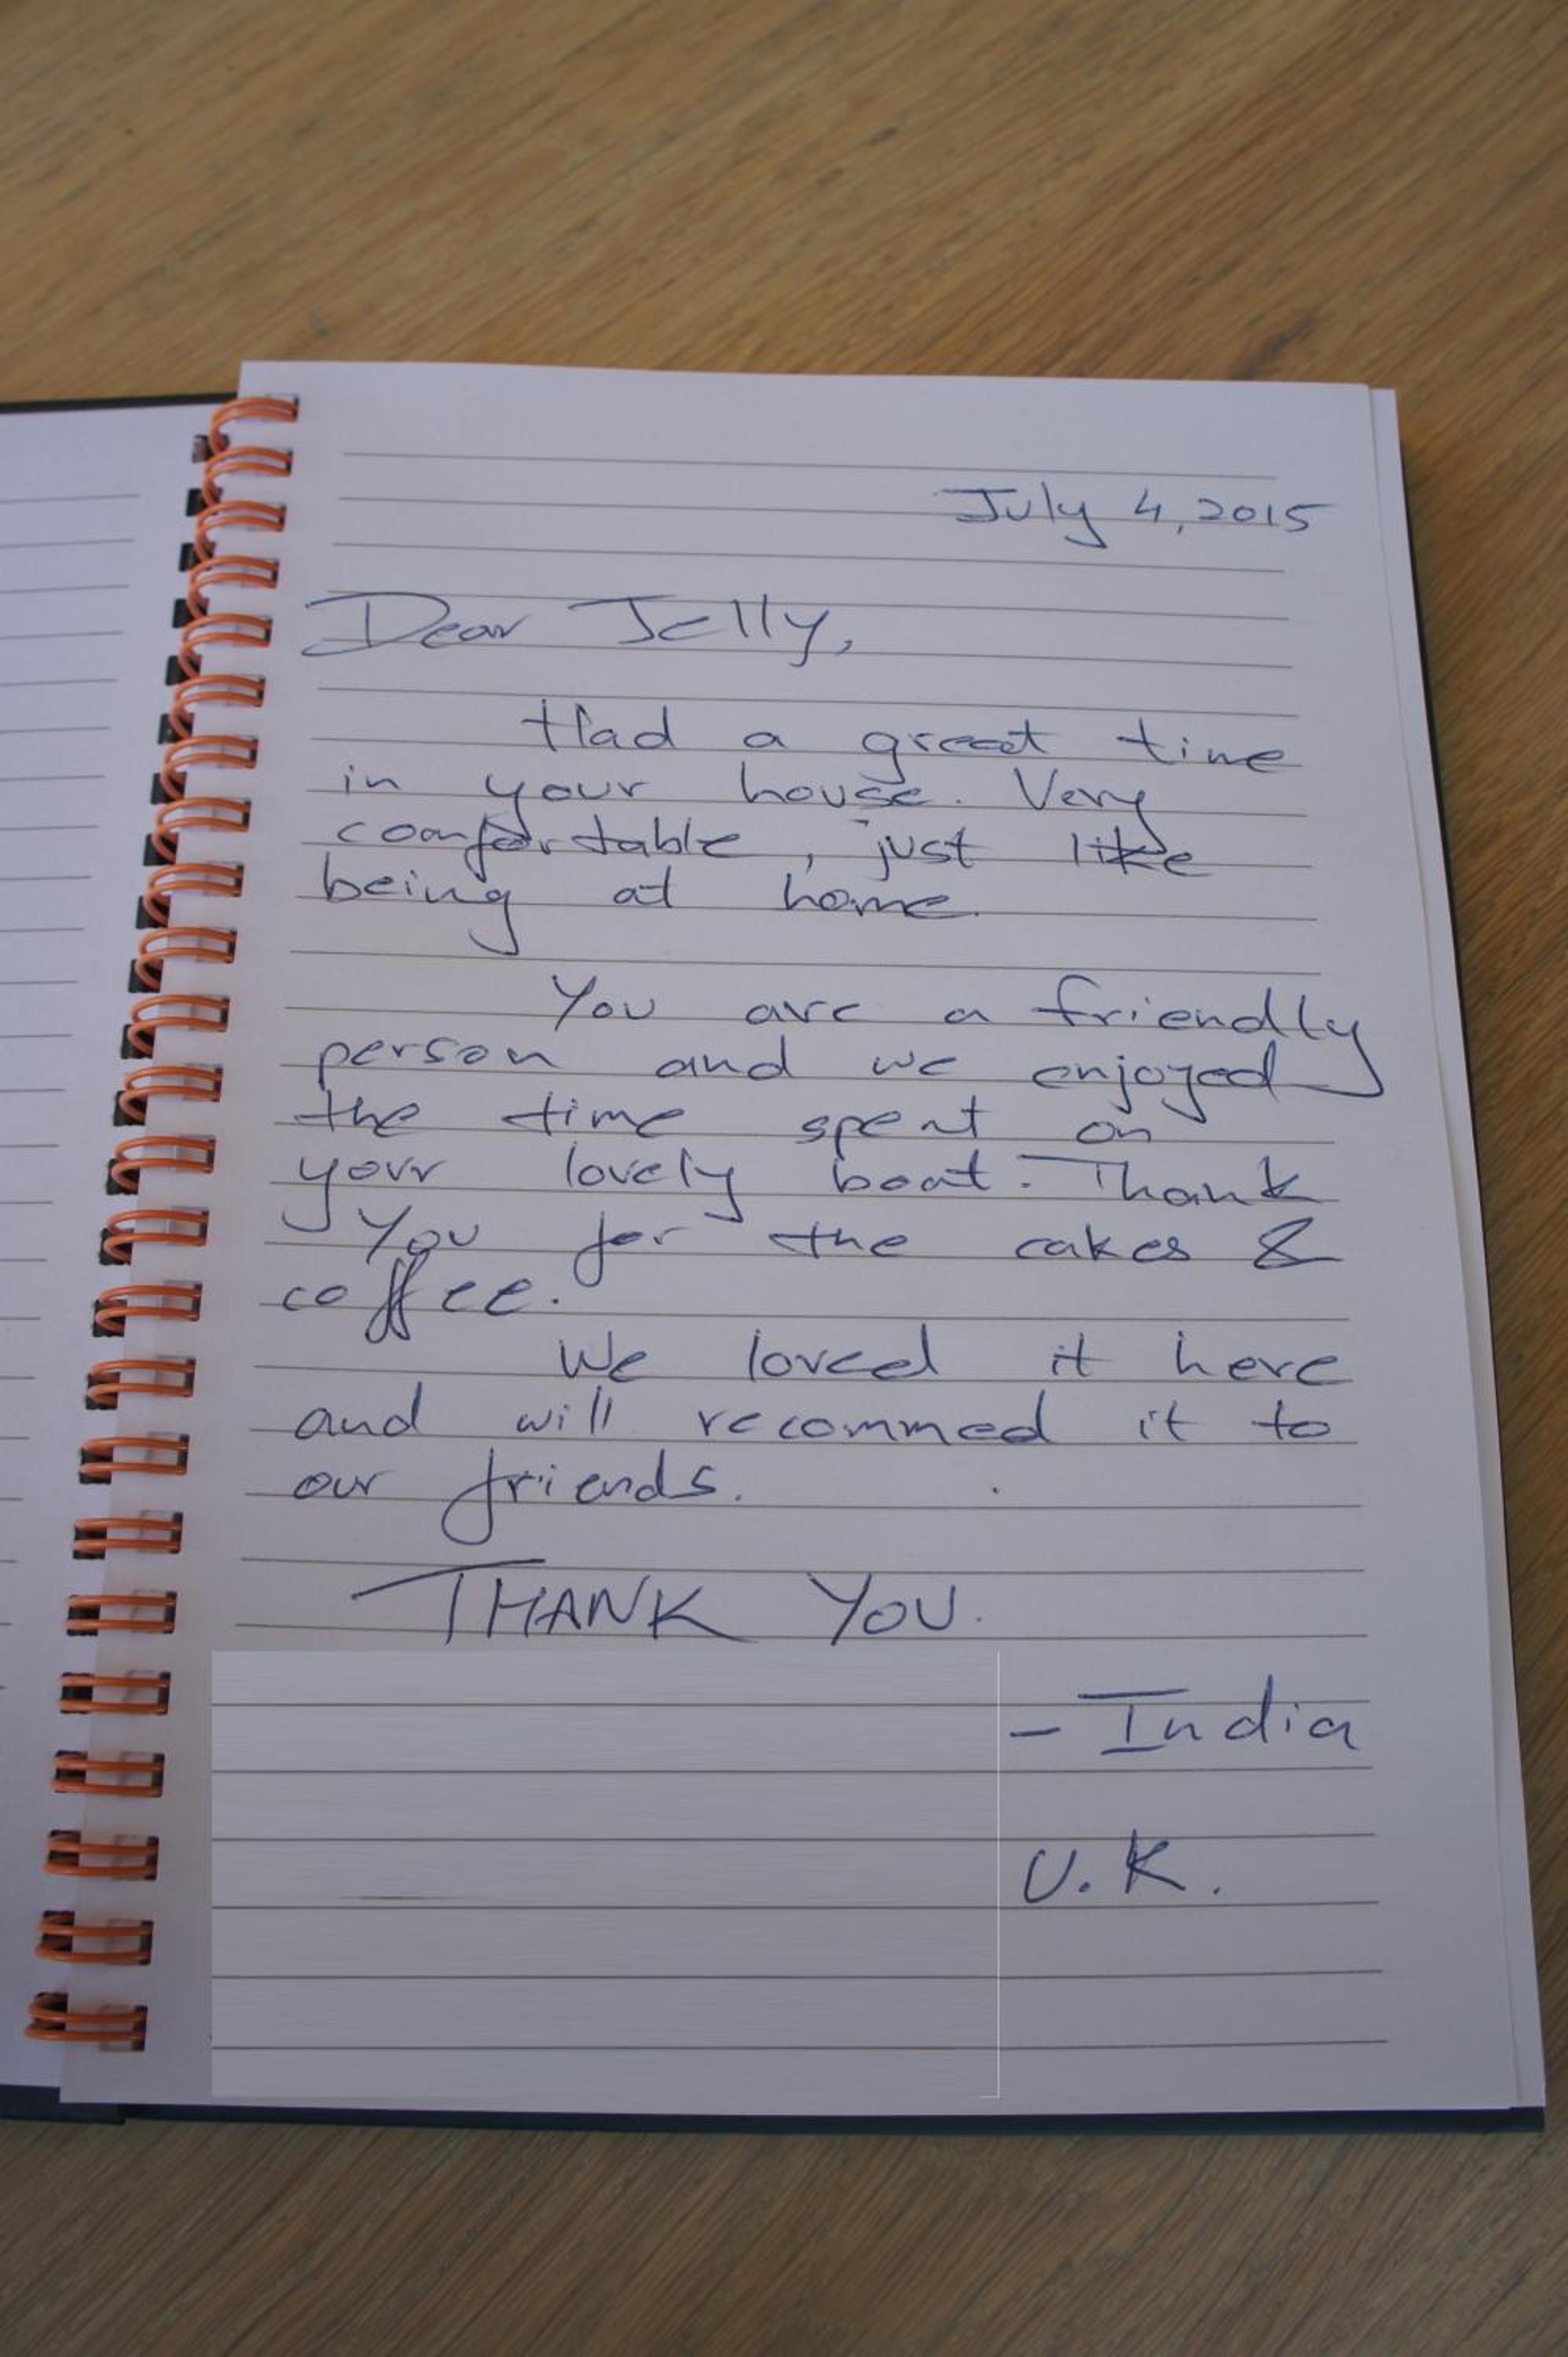 July 4, 2015
Dear Jelly,
Had a great time
in your house. Very
comfortable, just like
being at home.
You are a friendly
person and we enjoyed
the time spent on
your lovely boat. Thank
You for the cakes &
coffee.
We loved it here
and will recommed it to
our friends.
THANK YOU.
- India
U.K.